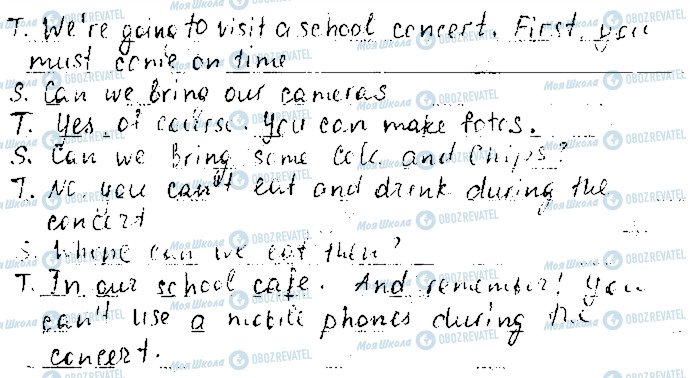 T. We're going to visit a school concert. First you
must come on time
S. Can we bring our cameras
T. Yes, of course. You can make fotos.
S. Can we bring some Cola and Chips?
T. No, you can't eat and drink during the
concert
S. Where can we eat then?
T. In our school cafe. And remember! You
can't use a mobile phones during the
concert.